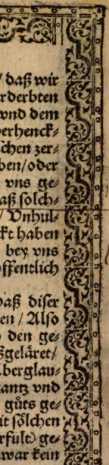 / daß wir
rderbten
vnd dem
erhenck-
chen zer-
ben/oder
vns ge-
aß solch-
/ Vnhul-
kt haben
bey vns
ffentlich
daß diser
en / Also
den ge-
ßgeläret/
berglau-
antz vnd
güts ge-
it sölchen
rfült) ge-
war kein